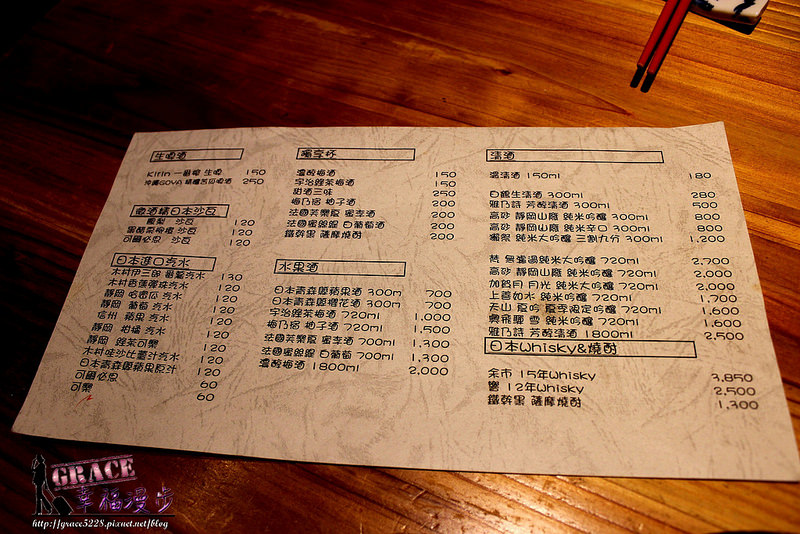 生啤酒
Kirin 一番榨 生啤 150
沖繩GOYA 精釀苦瓜啤酒 250
日本沙瓦
鳳梨 沙瓦 120
沙瓦 120
可爾必思 沙瓦 120
日本進口汽水
木村伊三郎 汽水 130
木村香蓮彈珠汽水 120
靜岡 哈密瓜 汽水 120
靜岡 葡萄 汽水 120
信州 蘋果 汽水 120
靜岡 柑橘 汽水 120
靜岡 綠茶可樂 120
木村哇沙比薑汁汽水 120
日本青森縣蘋果原汁 120
可爾必思 60
可樂 60
獨享杯
濃醇梅酒 150
宇治綠茶梅酒 150
甜酒三味 250
梅乃宿 柚子酒 200
法國芙樂夏 蜜李酒 200
法國蜜緹緹 白葡萄酒 200
鐵幹黑 薩摩燒酎 200
水果酒
日本青森縣蘋果酒 300m 700
日本青森縣櫻花酒 300m 700
宇治綠茶梅酒 720ml 1,000
梅乃宿 柚子酒 720ml 1,500
法國芙樂夏 蜜李酒 700ml 1,300
法國蜜緹緹 白葡萄 700ml 1,300
濃醇梅酒 1800ml 2,000
清酒
溫清酒 150ml 180
白鶴生清酒 300ml 280
雅乃詩 芳醇清酒 300ml 500
高砂 靜岡山廢 純米吟釀 300ml 800
高砂 靜岡山廢 純米辛口 300ml 800
獺祭 純米大吟釀 三割九分 300ml 1,200
梵 無濾過純米大吟釀 720ml 2,700
高砂 靜岡山廢 純米吟釀 720ml 2,000
加賀 月光 純米大吟釀 720ml 2,000
上善如水 純米吟釀 720ml 1,700
天山 夏吟 夏季限定吟釀 720ml 1,600
奧飛驒 雪 純米吟釀 720ml 1,600
雅乃詩 芳醇清酒 1800ml 2,500
日本Whisky&燒酎
余市 15年Whisky 3,850
響 12年Whisky 2,500
鐵幹黑 薩摩燒酎 1,300
GRACE
幸福漫步
http://grace5228.pixnet.net/blog